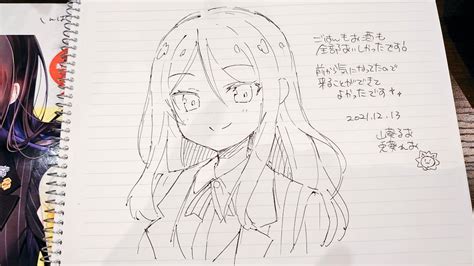 ごはんもお酒も
全部おいしかったです！
前から気になってたので
来ることができて
よかったです
2021.12.13